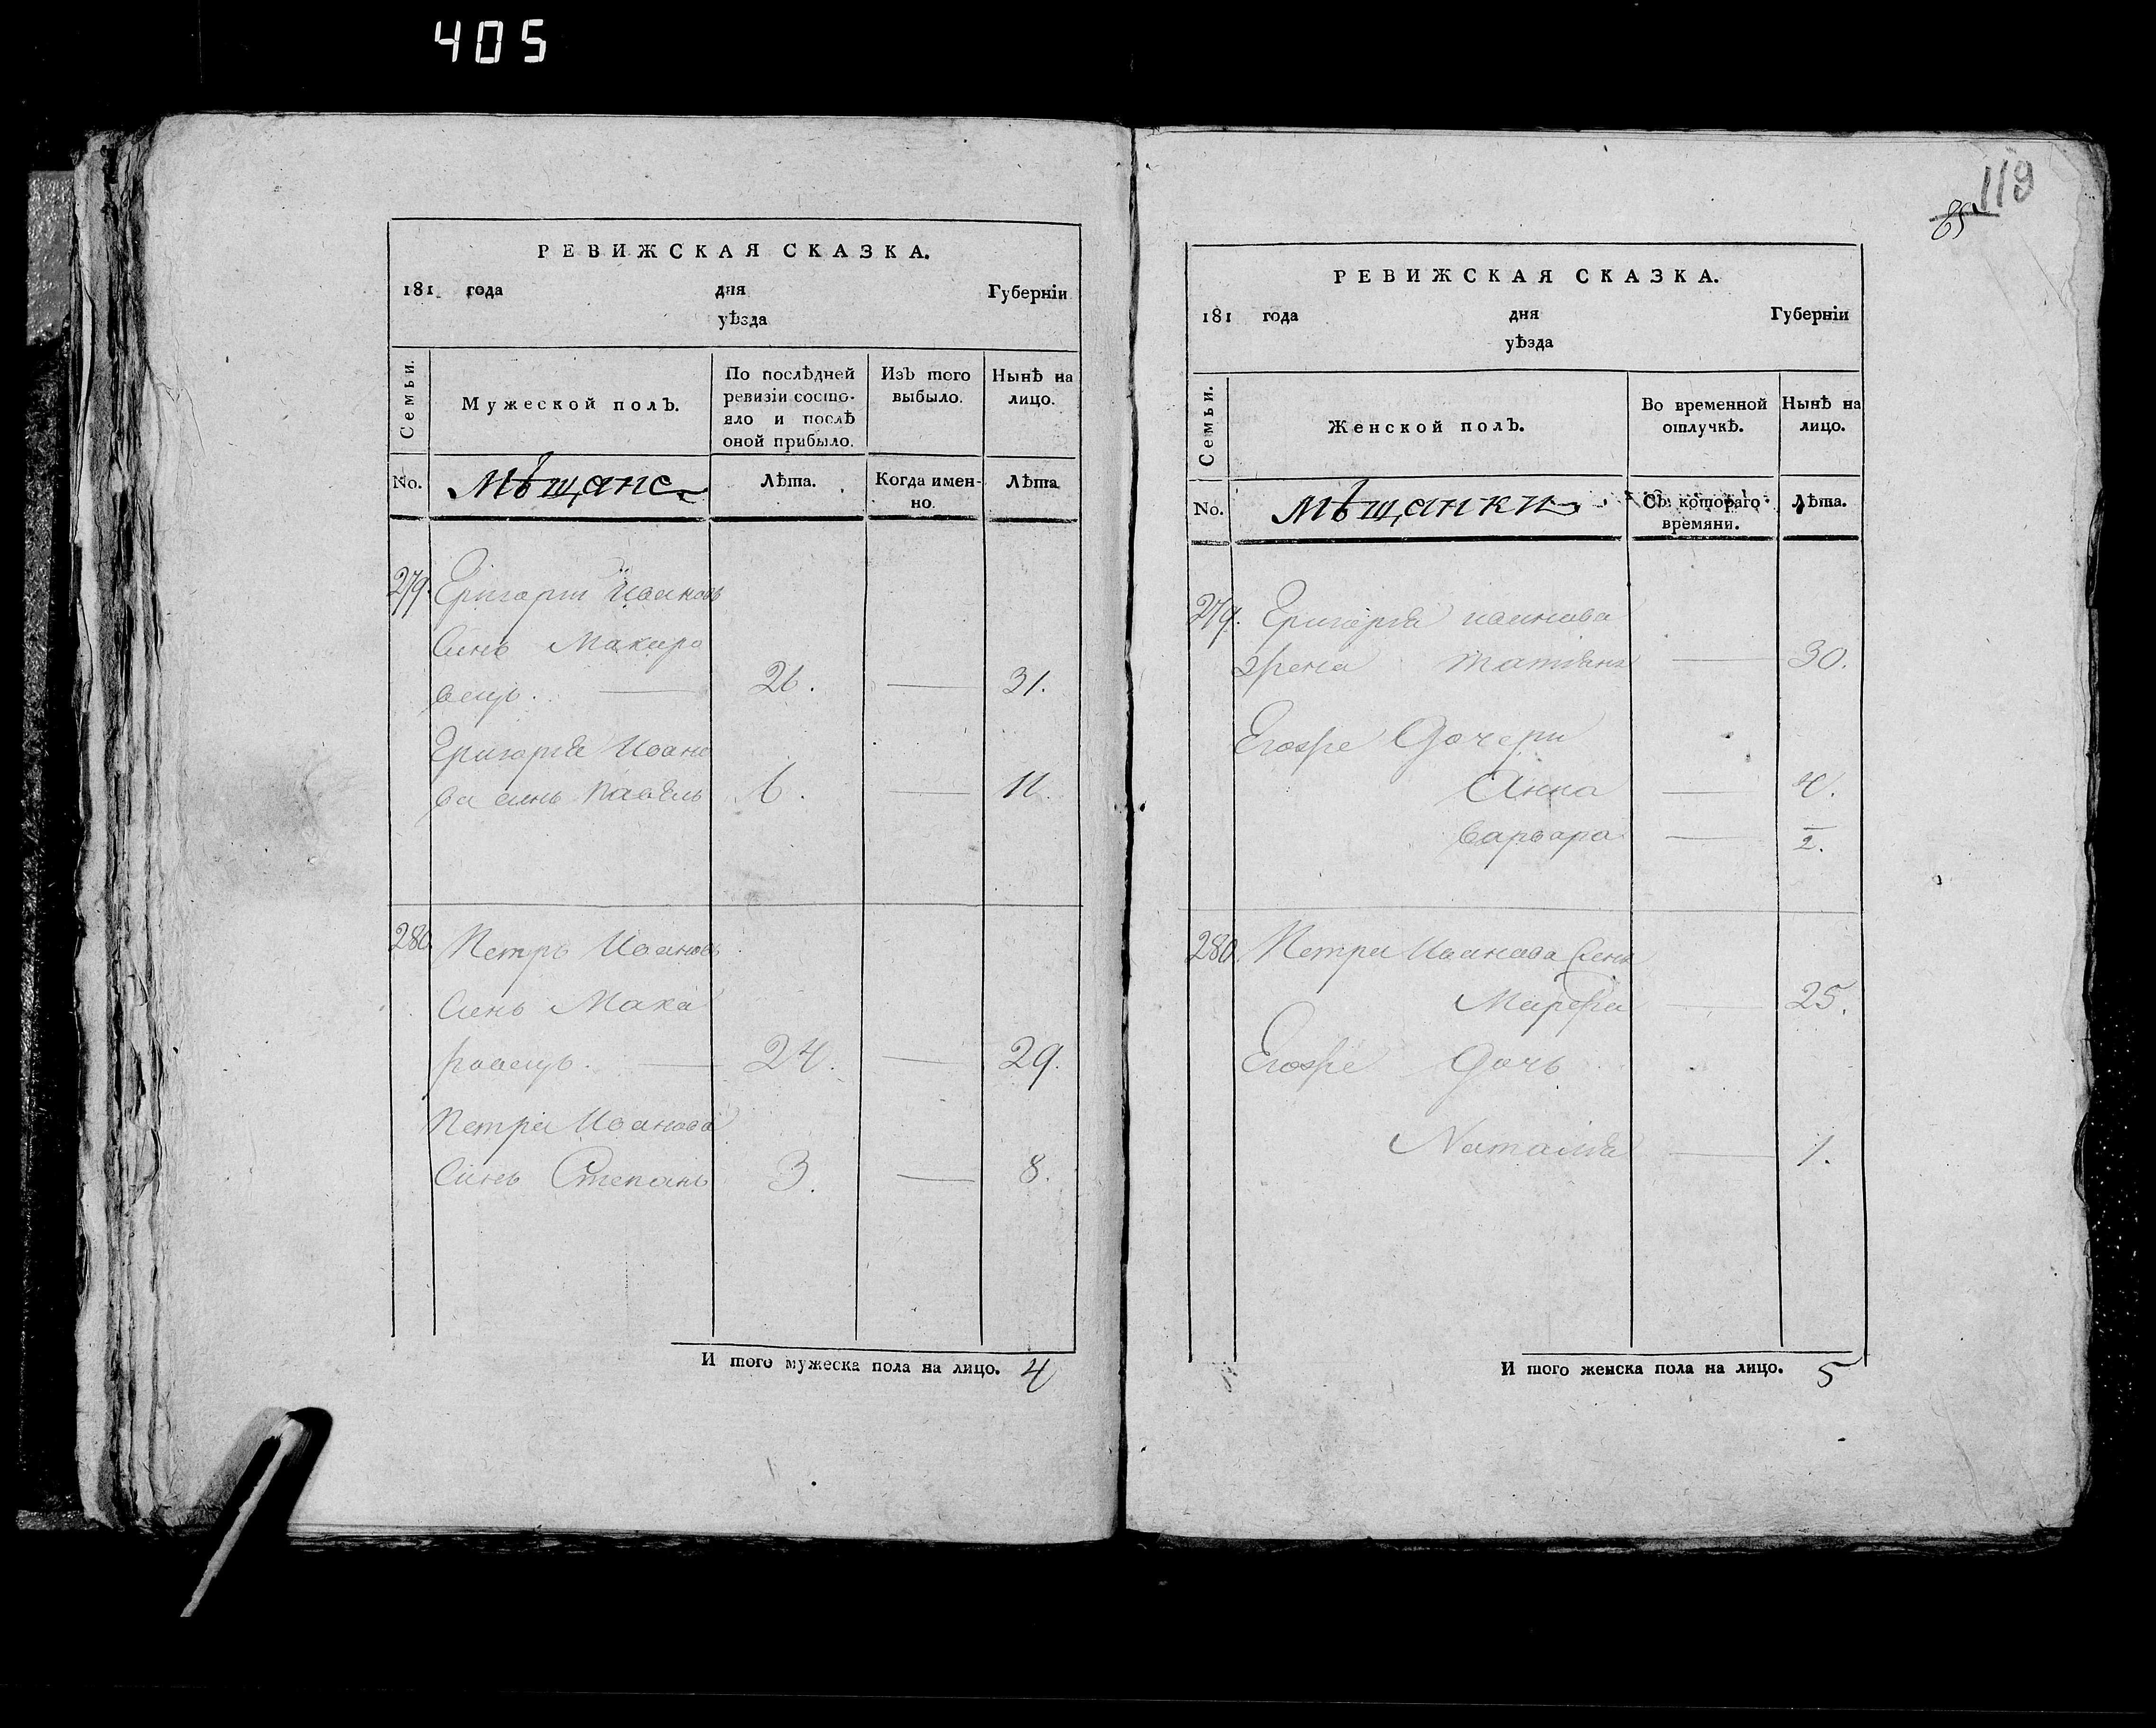 405
РЕВИЖСКАЯ СКАЗКА.
181 года дня Губерніи
уѣзда
Семьи.
Мужеской полъ.
По послѣдней
ревизіи состо-
яло и послѣ
оной прибыло.
Изъ того
выбыло.
Нынѣ на
лицо.
No. мѣщане Лѣта. Когда имен-
но.
Лѣта
279. Григорги Ивановъ
Синъ Макаро
вецъ. — 26. — 31.
Григоргя Ивано
ва синъ Павелъ 6. — 11.
280. Петръ Ивановъ
Сынъ Мака
ровецъ. — 24. — 29.
Петра Иванова
Синъ Степанъ 3. — 8.
И того мужеска пола на лицо. 4
119
РЕВИЖСКАЯ СКАЗКА.
181 года дня Губерніи
уѣзда
Семьи.
Женской полъ.
Во временной
отлучкѣ.
Нынѣ на
лицо.
No. мѣщанки Съ котораго
времяни.
Лѣта.
279. Григоргя иванова
жена — 30.
Егоже Дочери
Анна — 4.
варвара — 2.
280. Петра Иванова
Марфа — 25.
Егоже Дочь
— 1.
И того женска пола на лицо. 5